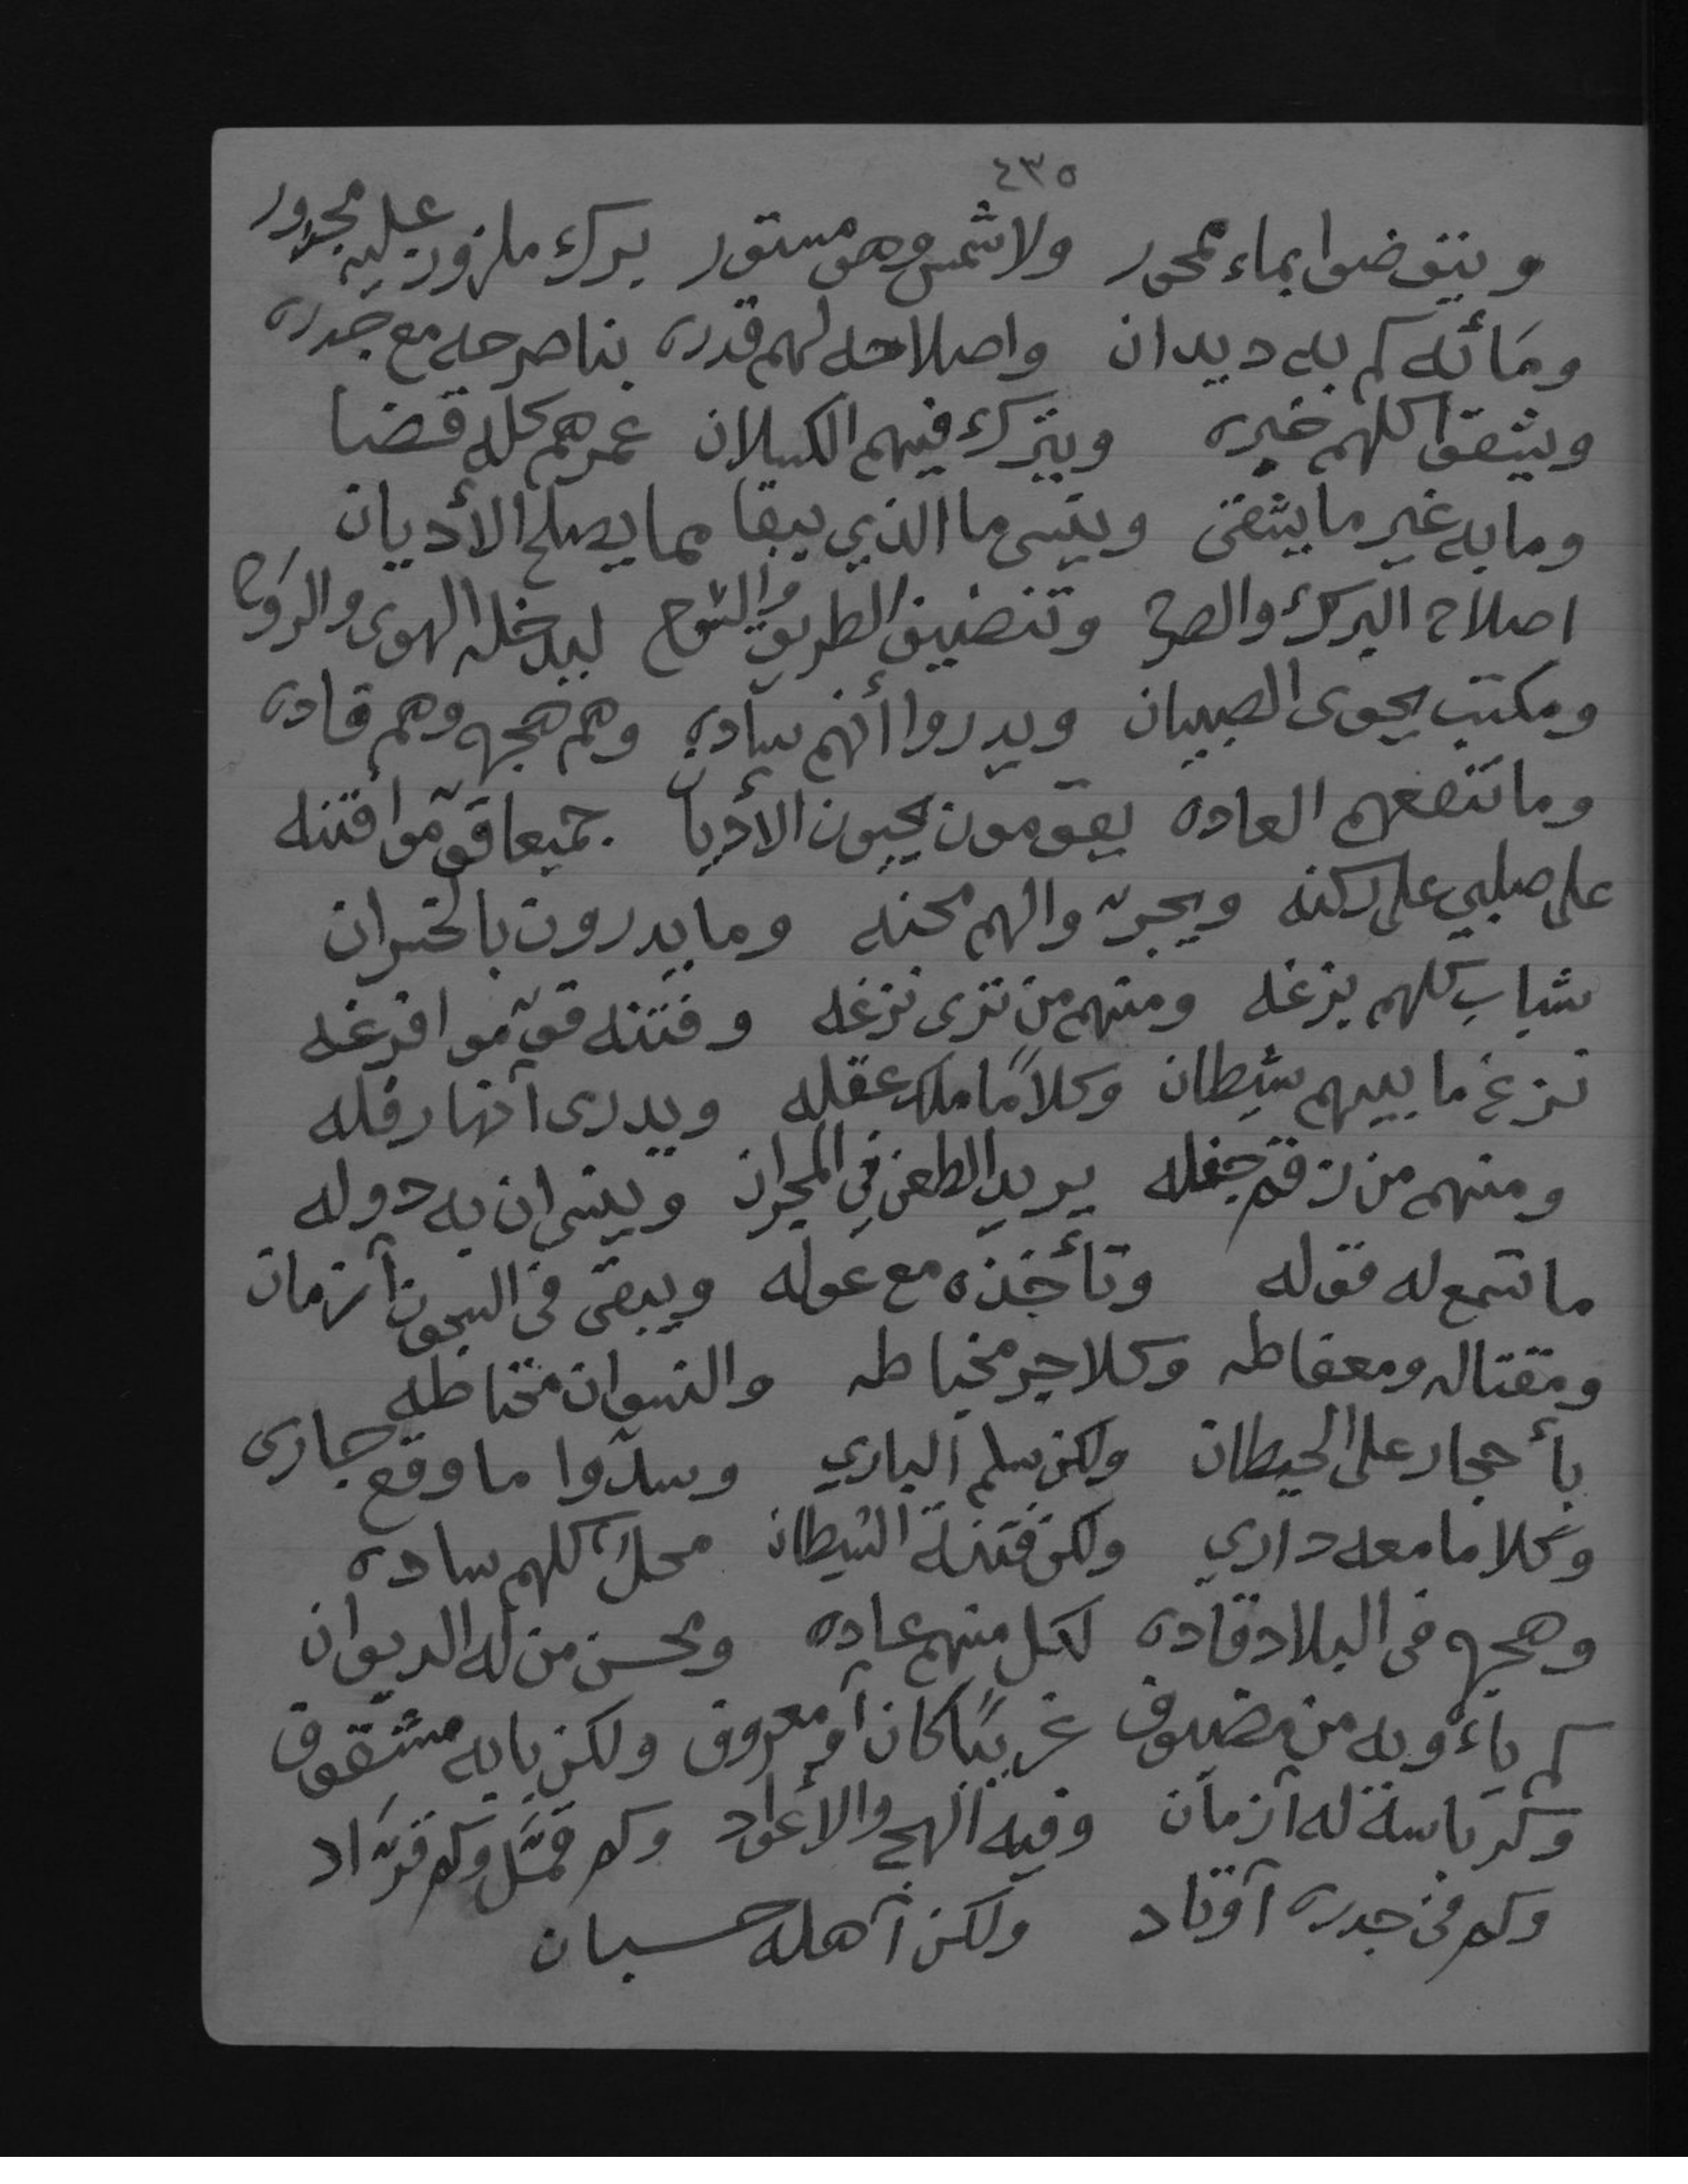 ٤٣٥
ويتوضوا بماء محور ولا شمس وهو مستور برك ملزوز عليه مجدور
ومَائه كم به ديدان واصلاحه لهم قدره بناصرحه مع جدره
ويثقوا كلهم خيره ويترك فيهم الكسلان عمرهم كله قضا
وما به غير ما يشقى وينسى ما الذي يبقا مما يصلح الأديان
اصلاح البرك والصرح وتنضيف الطريق والسوح ليدخله الهوى والروح
ومكتب يحوى الصبيان ويدروا أنهم ساده وهم هجه وهم قاده
وما تنفعهم العاده يقومون يحيون الأديان جميعا قوموا فتنه
على صلبي على ركنه ويجرّوا لهم محنه وما يدرون بالخسران
شباب كلهم بزغه ومنهم من ترى نزغه وفتنه قوّموا فرغه
نزغ ما بينهم شيطان وكلاً ما ملك عقله ويدرى آنها رفله
ومنهم من زقم جفله يريد الطعن في الجيران وينسى ان به دوله
ما تسمع له قوله وتأخذه مع عوله ويبقى في السجون آزمان
ومقتاله ومعفاطه وكلا جر مخباطه والنسوان مختاطه
بأحجار على الحيطان ولكن سلم الباري وسدّوا ما وقع جارى
وكلا ما معه داري ولكن فتنة الشيطان محل كلهم ساده
وهجه في البلاد قاده لكل منهم عاده ومحسن من له الديوان
كم يأوبه من مضيوف غريبًا كان أو معروف ولكن بابه مشقوق
وكرباسة له آزمان وفيه الهج والأعواد وكم قمّل وكم قرّاد
وكم في جدره آوتاد ولكن آهله حسبان